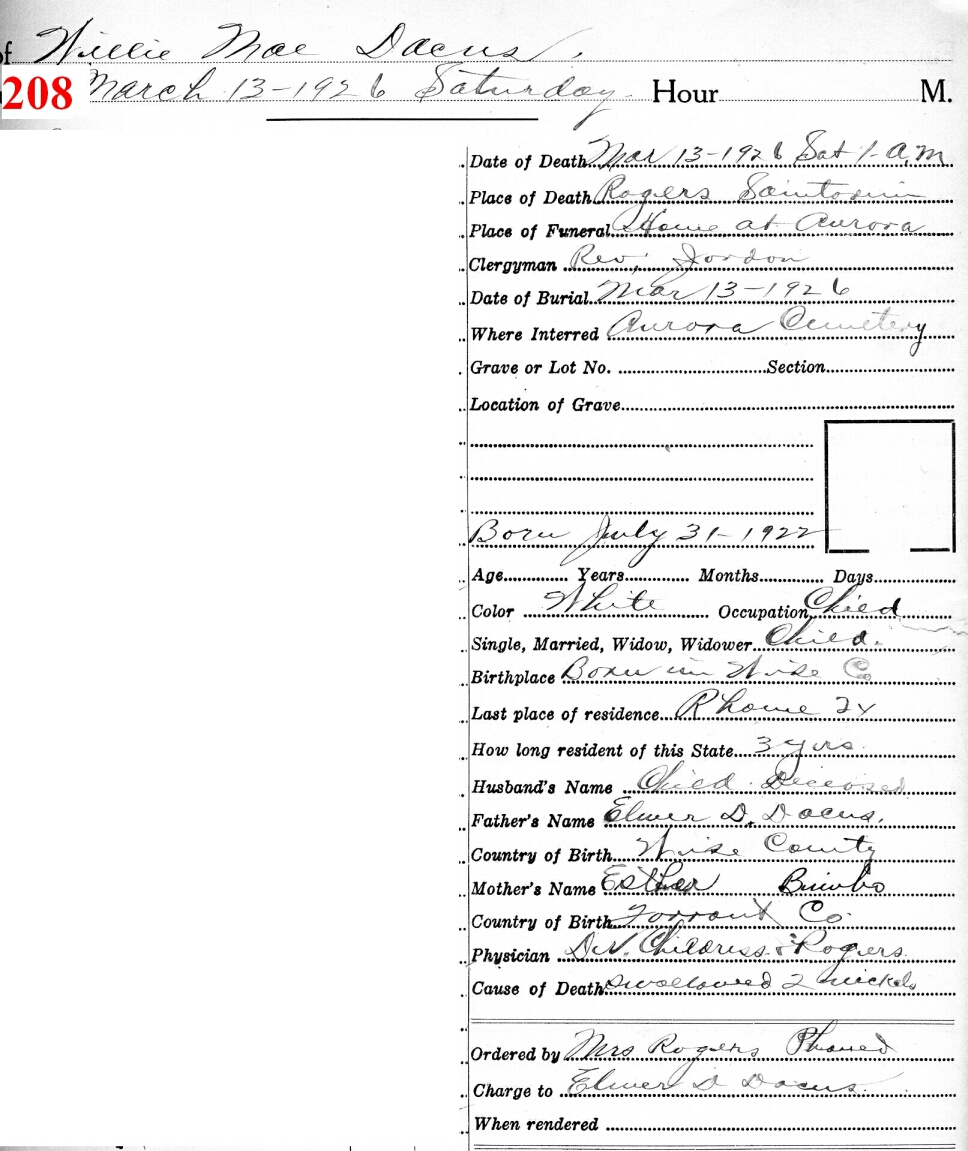 of Willie Mae Dacus.
208 March 13-1926 Saturday Hour M.
Date of Death Mar 13-1926 Sat 1- a.m
Place of Death Rogers
Place of Funeral Home at Aurora
Clergyman Rev. Jordon
Date of Burial Mar 13-1926
Where Interred Aurora Cemetery
Grave or Lot No. Section
Location of Grave
Born July 31-1922
Age Years Months Days
Color White Occupation Child
Single, Married, Widow, Widower Child.
Birthplace Born in Wise Co
Last place of residence Rhome Tx
How long resident of this State 3 yrs
Husband's Name Child Deceased
Father's Name Elmer D. Dacus.
Country of Birth Wise County
Mother's Name Esther
Country of Birth Tarrant Co.
Physician Dr. Childress & Rogers
Cause of Death Swallowed 2 nickels
Ordered by Mrs Rogers Phoned
Charge to Elmer D Dacus
When rendered